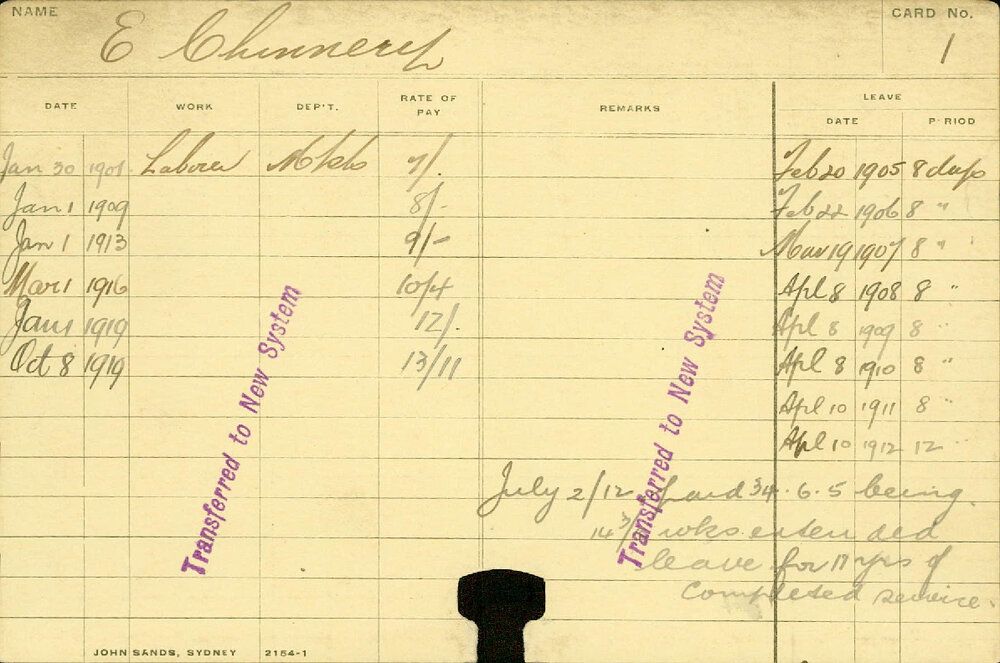 NAME E Chinnery CARD No. 1
DATE WORK DEP'T. RATE OF PAY REMARKS LEAVE
DATE P RIOD
Jan 30 1901 Laborer 7/. Feb 20 1905 8 days
Jan 1 1909 8/- Feb 22 1906 8 "
Jan 1 1913 9/- Mar 19 1907 8 "
Mar 1 1916 10/4 Apl 8 1908 8 "
Jan 1 1919 12/. Apl 8 1909 8 "
Oct 8 1919 13/11 Apl 8 1910 8 "
Apl 10 1911 8 "
Apl 10 1912 12 "
Transferred to New System
Transferred to New System
July 2/12 paid 34.6.5 being
wks extended
leave for 17 yrs of
completed service.
JOHN SANDS, SYDNEY 2154-1